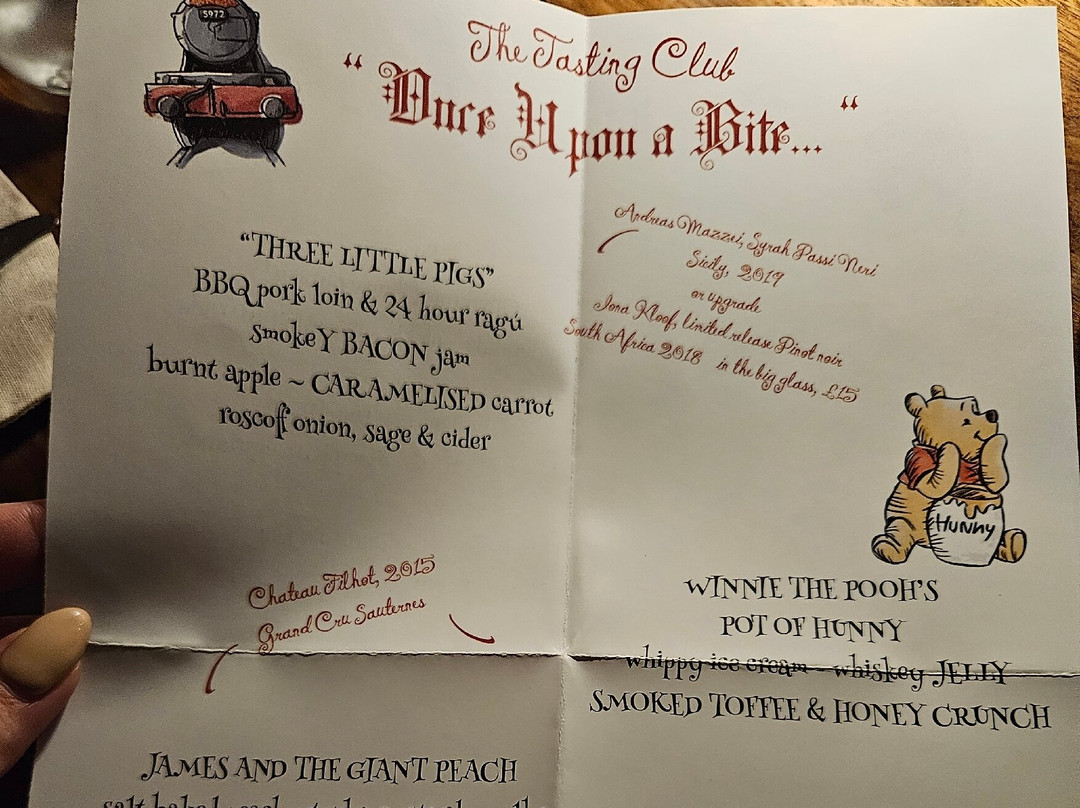 5972
The Tasting Club
“ Once Upon a Bite... “
“THREE LITTLE PIGS”
BBQ pork loin & 24 hour ragú
smokeY BACON jam
burnt apple ~ CARAMELISED carrot
roscoff onion, sage & cider
Andreas Mazzei, Syrah Passi Neri
Sicily, 2019
or upgrade
Iona Kloof, limited release Pinot noir
South Africa 2018 in the big glass, £15
Hunny
Chateau Filhot, 2015
Grand Cru Sauternes
WINNIE THE POOH'S
POT OF HUNNY
whippy ice cream - whiskey JELLY
SMOKED TOFFEE & HONEY CRUNCH
JAMES AND THE GIANT PEACH
salt